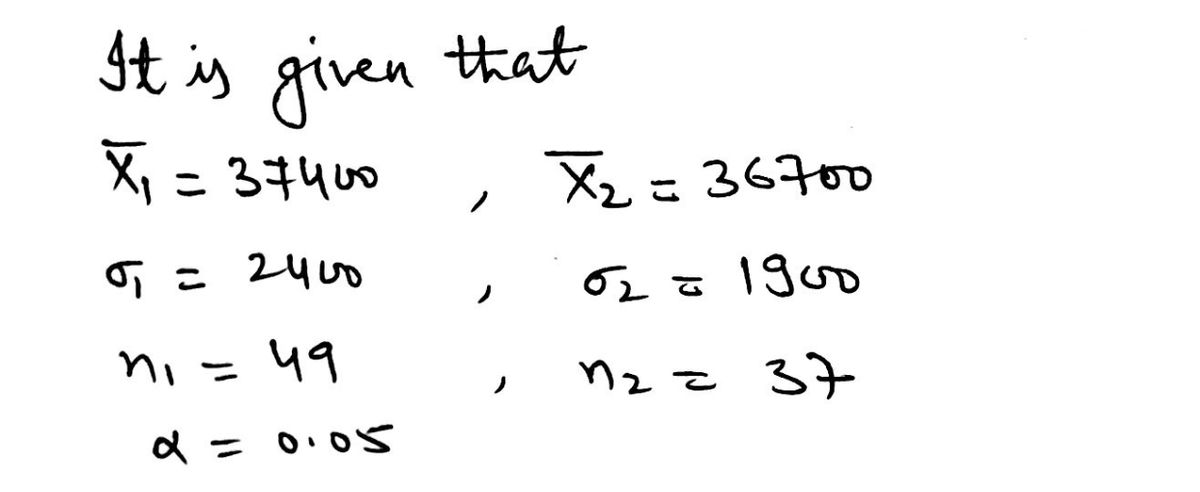 It is given that
X̄₁ = 37400 , X̄₂ = 36700
σ₁ = 2400 , σ₂ = 1900
n₁ = 49 , n₂ = 37
α = 0.05